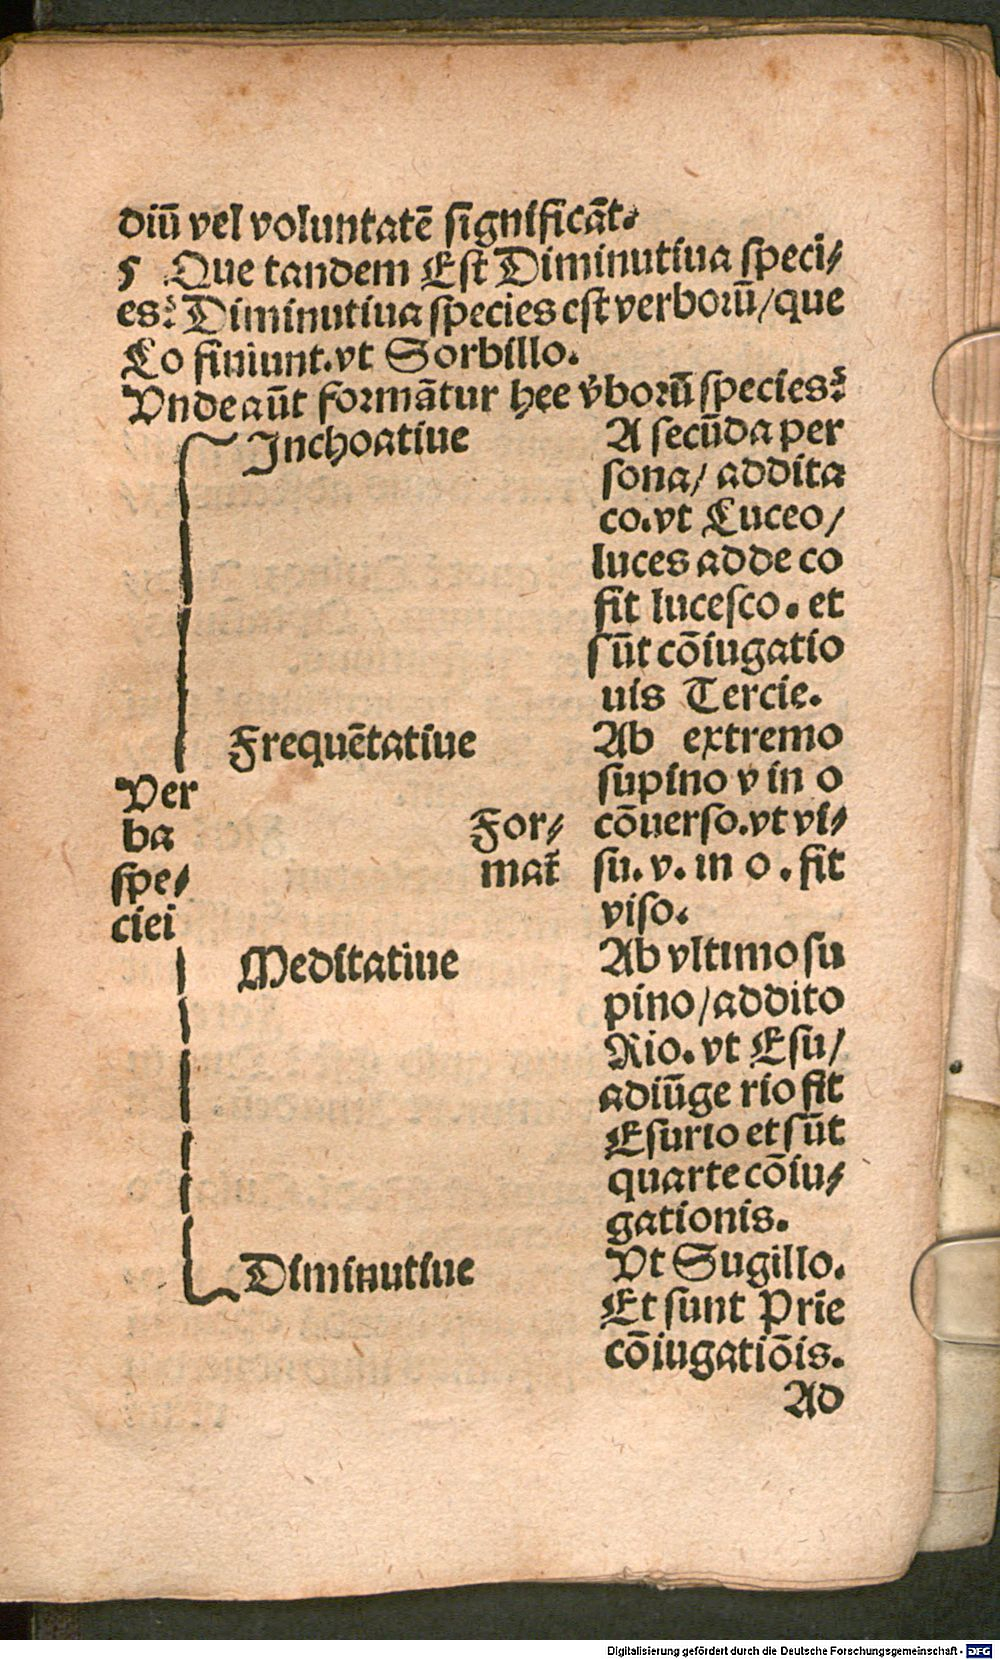 diū vel voluntatē significāt.
5 Que tandem Est Diminutiua speci/
es? Diminutiua species est verborū/que
Lo finiunt.vt Sorbillo.
Vnde aūt formātur hee v̄borū species?
Inchoatiue
A secūda per
sona/ addita
co.vt Luceo/
luces adde co
fit lucesco. et
sūt cōiugatio
nis Tercie.
Frequētatiue
Ab extremo
supino v in o
cōuerso.vt vi/
su. v. in o . fit
viso.
Ver
ba
spe/
ciei
For/
mat̄
Meditatiue
Ab vltimo su
pino/addito
Rio. vt Esu/
adiūge rio fit
Esurio et sūt
quarte cōiu/
gationis.
Diminutiue
Vt Sugillo.
Et sunt Prie
cōiugatiōis.
Ad
Digitalisierung gefördert durch die Deutsche Forschungsgemeinschaft - DFG